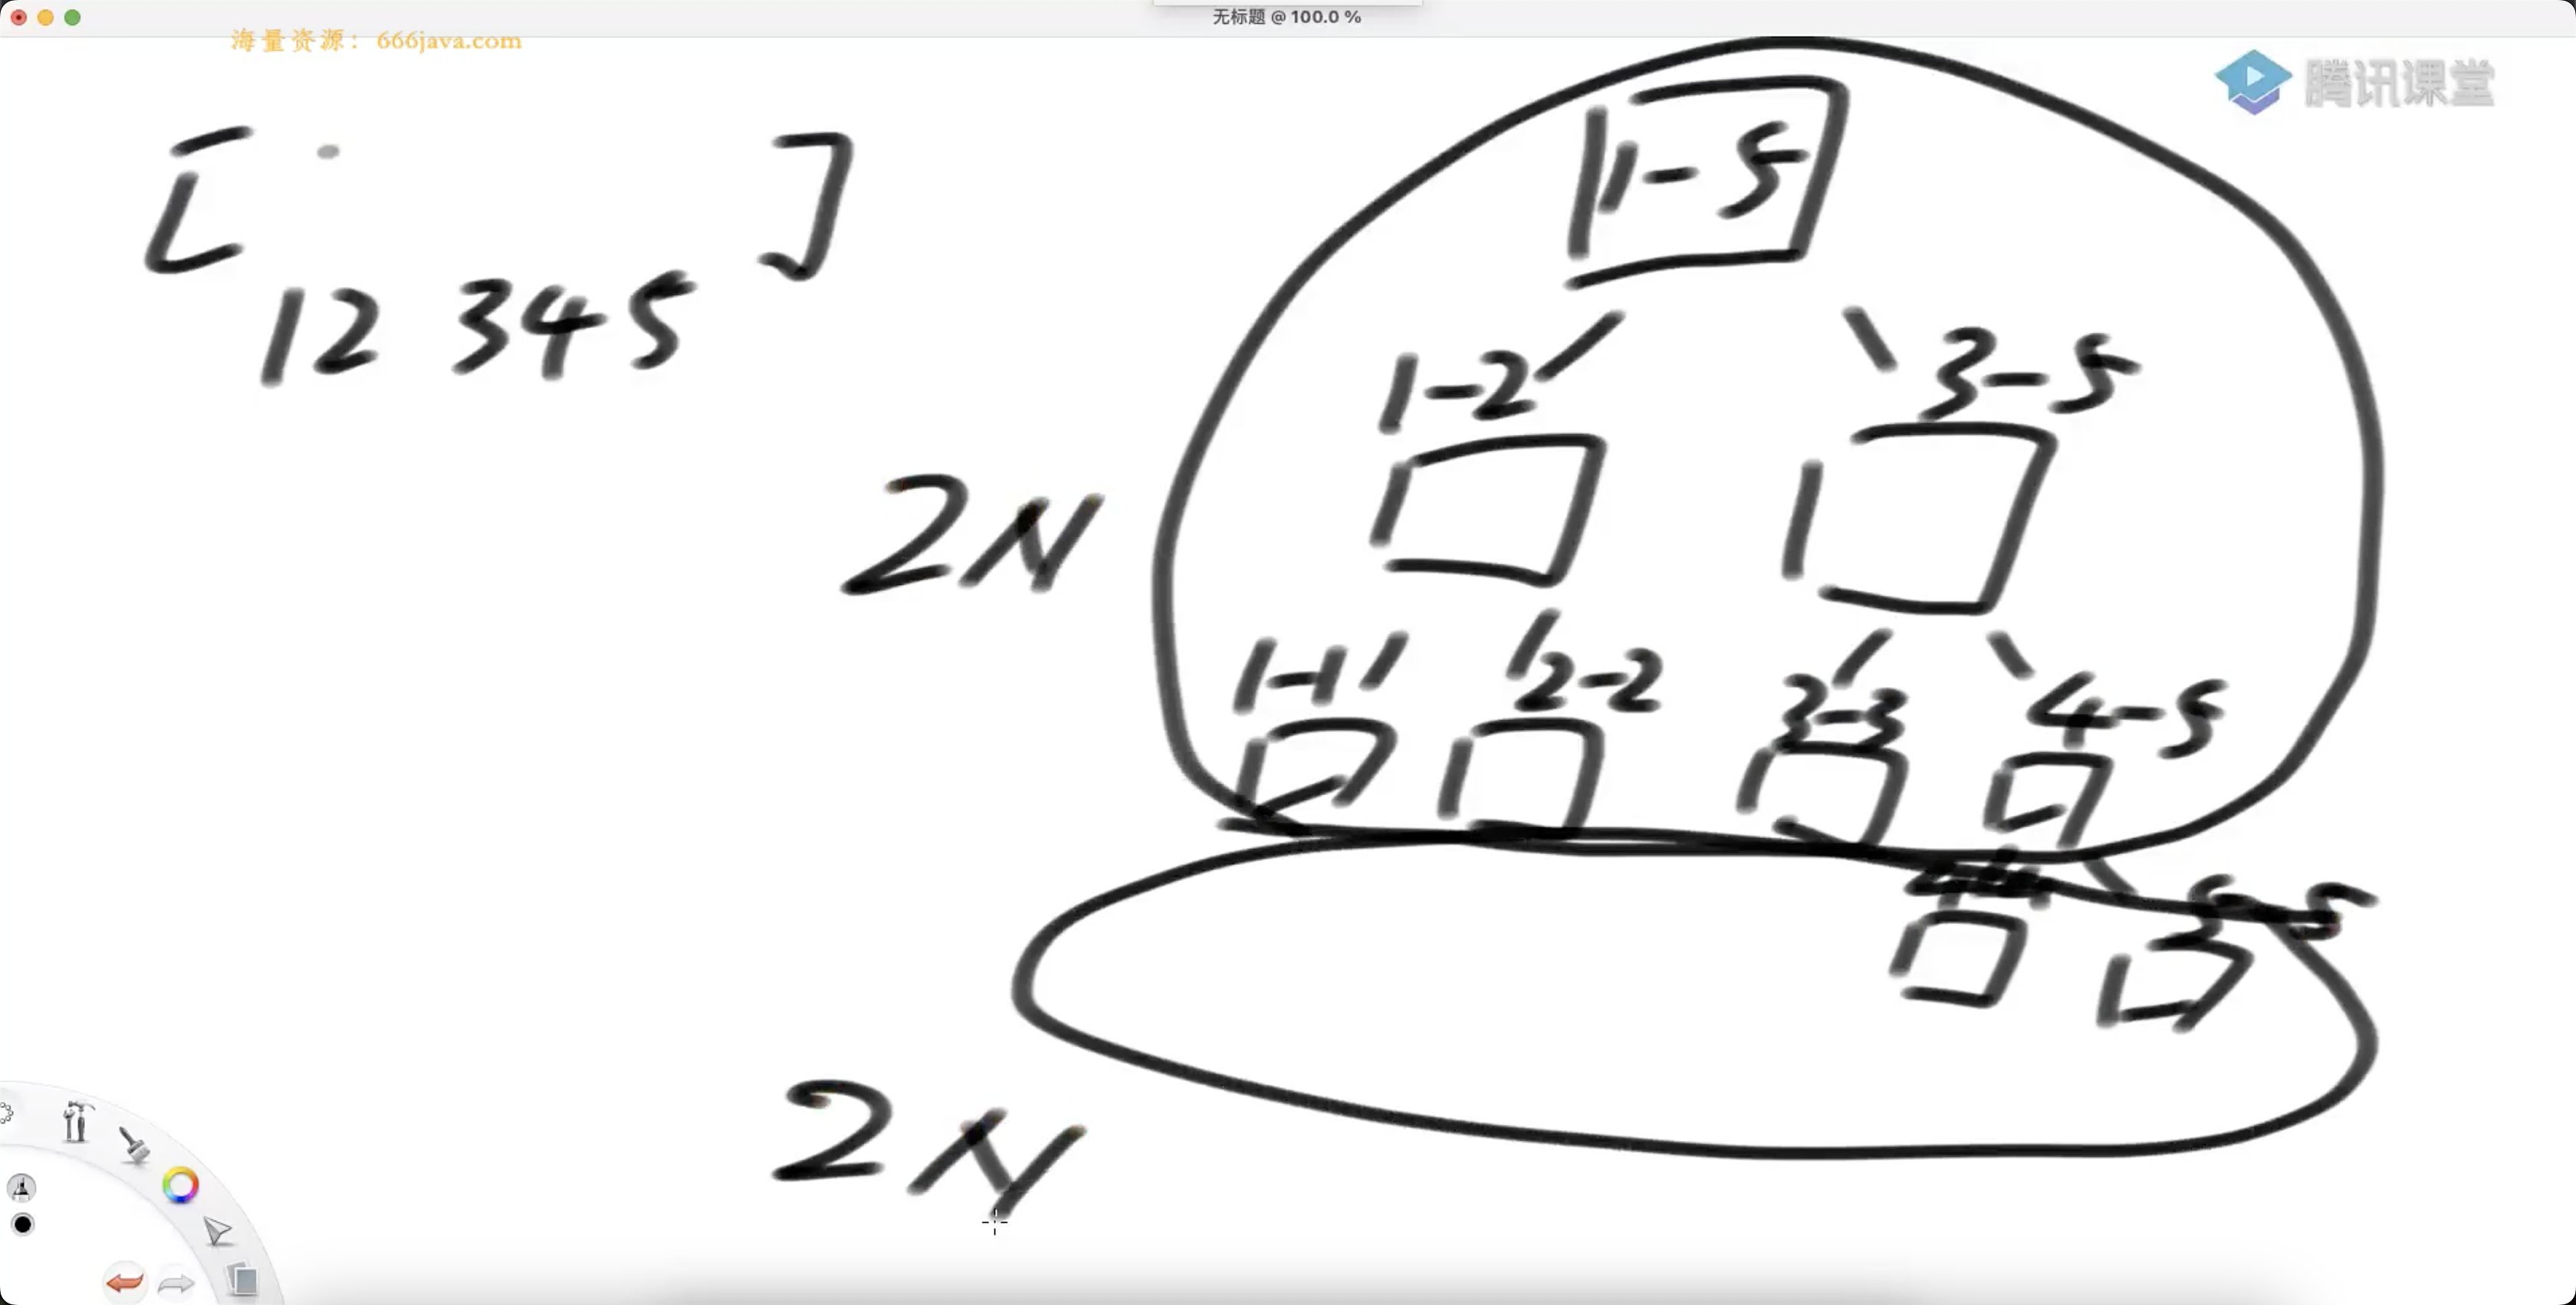 无标题 @ 100.0 %
海量资源：666java.com
腾讯课堂
[ ]
1 2 3 4 5
1-5
1-2 3-5
2N
1-1 2-2 3-3 4-5
4-4 5-5
2N